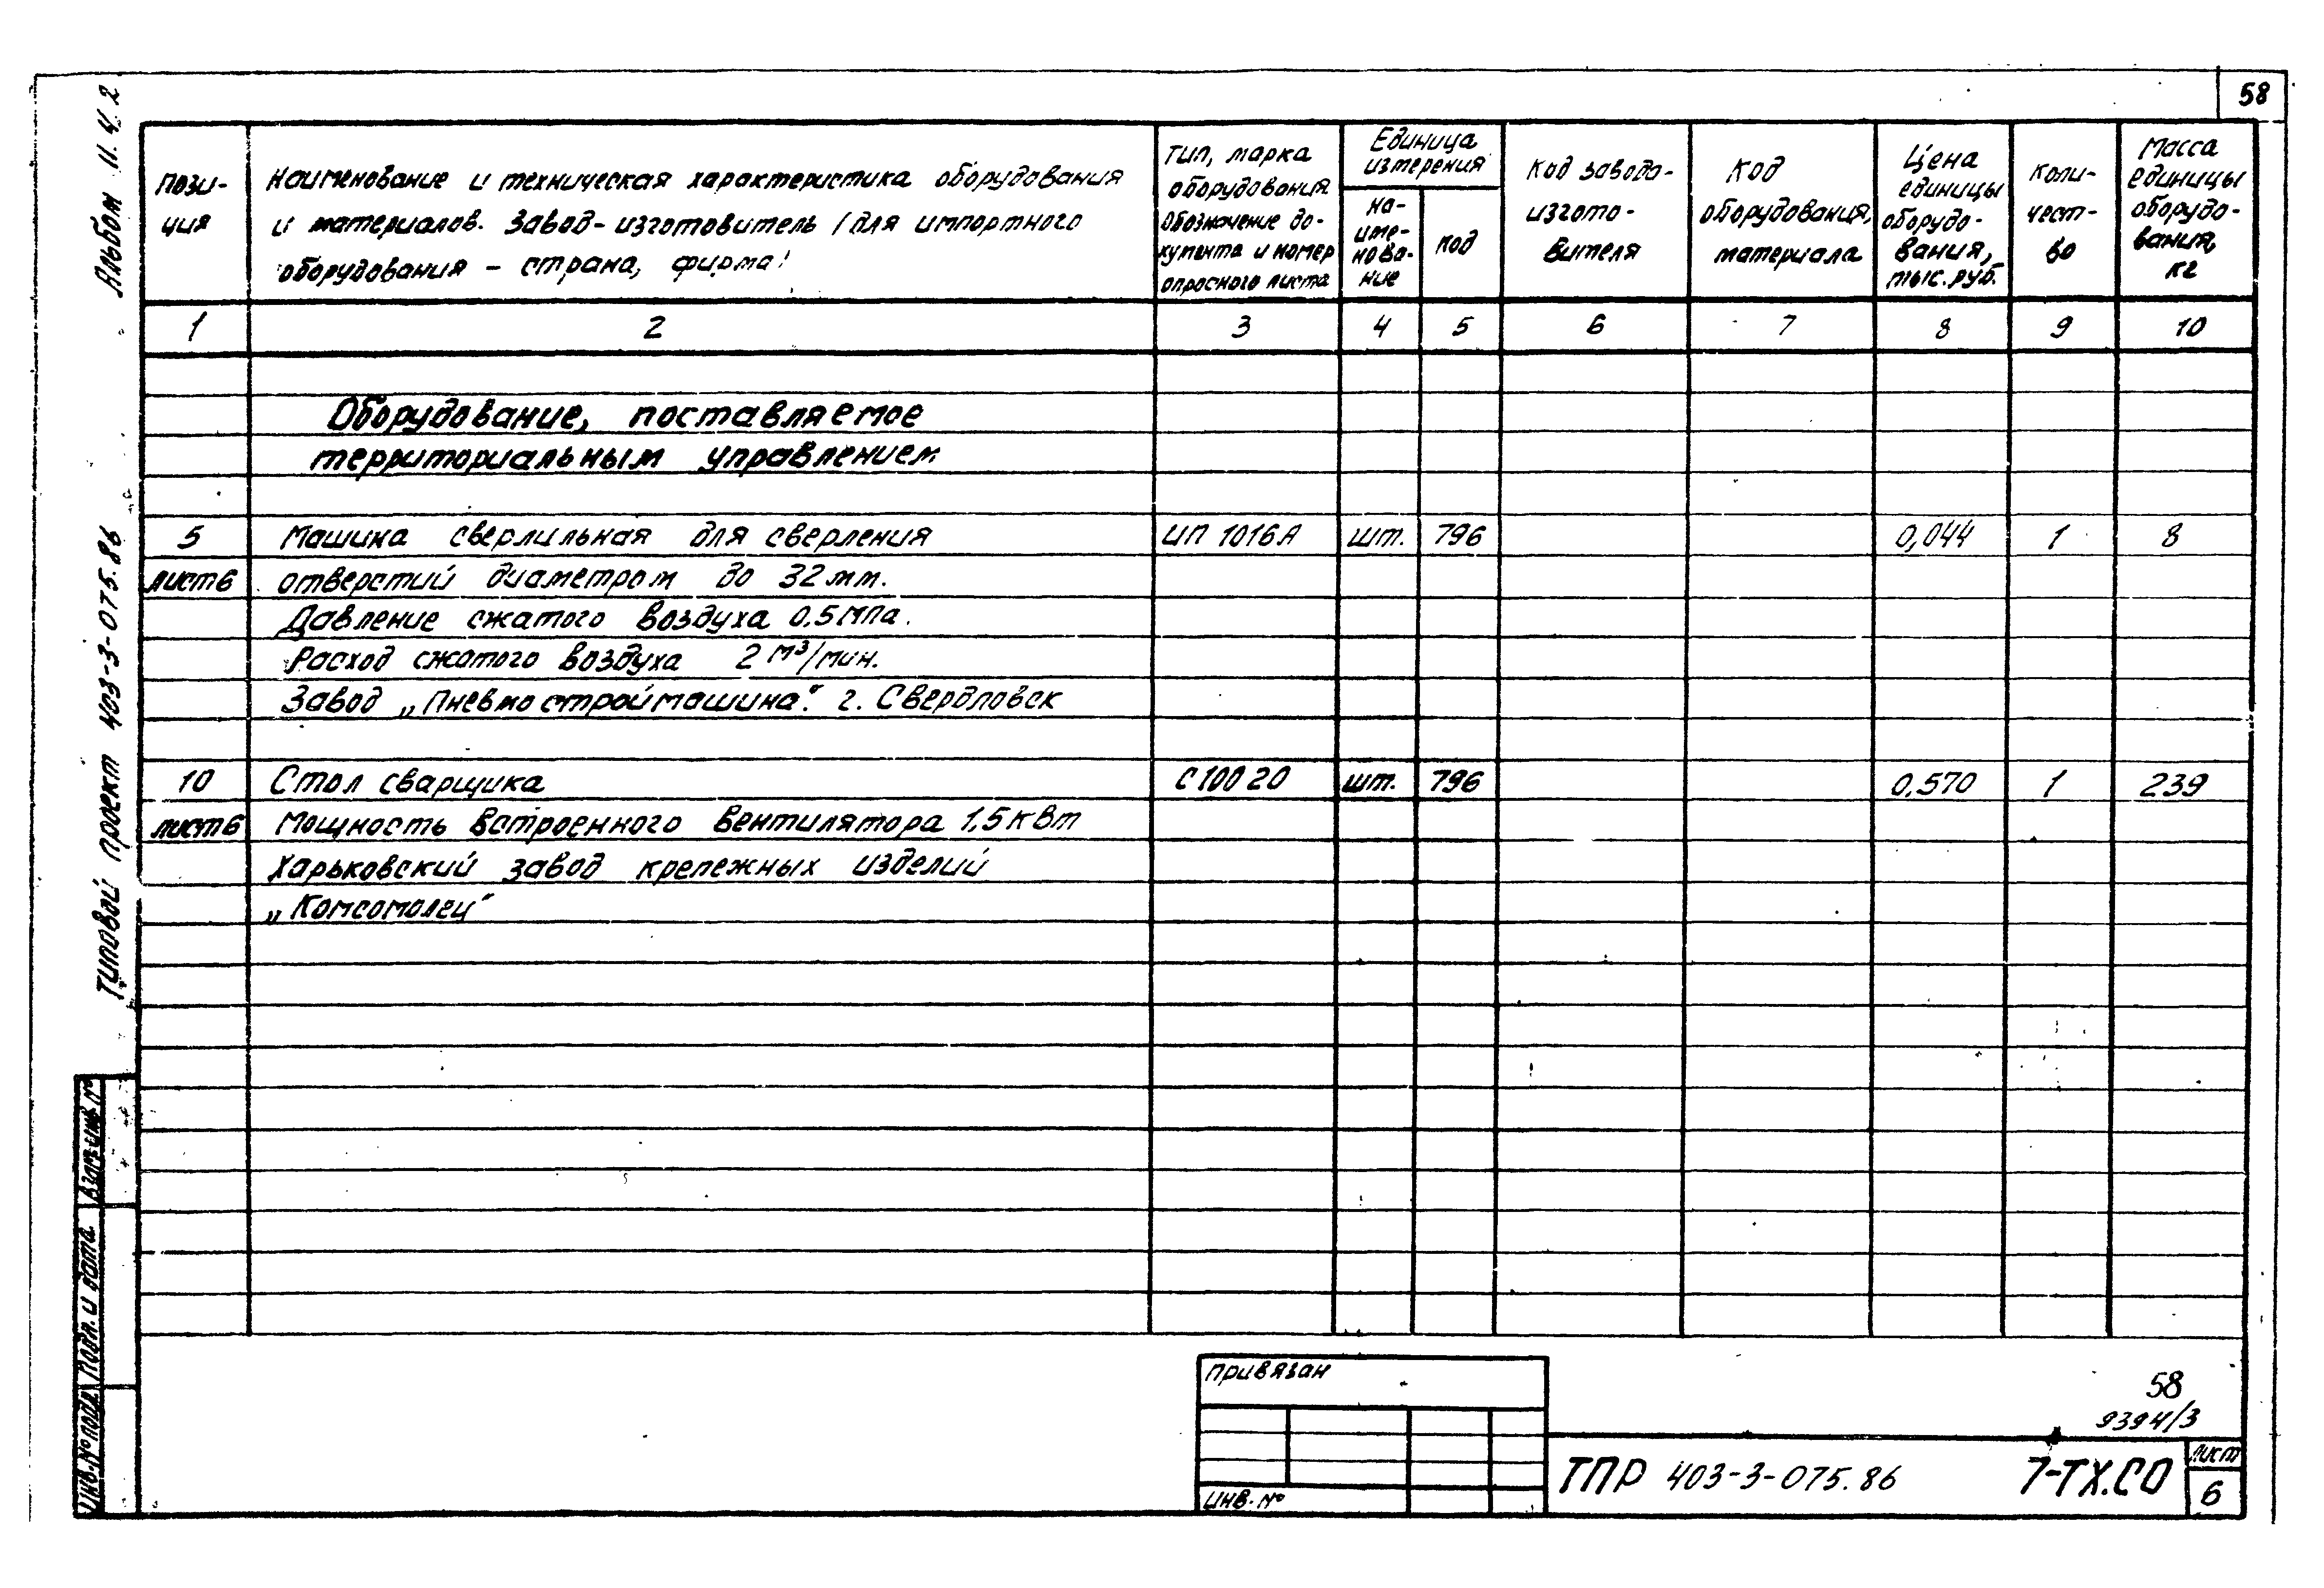 58
Альбом II. ч. 2
Типовой проект 403-3-075.86
Пози-
ция
Наименование и техническая характеристика оборудования
и материалов. Завод-изготовитель /для импортного
оборудования – страна, фирма/
Тип, марка
оборудования
Обозначение до-
кумента и номер
опросного листа
Единица
измерения
на-
име-
нова-
ние
код
Код завода-
изгото-
вителя
Код
оборудования,
материала
Цена
единицы
оборудо-
вания,
тыс. руб.
Коли-
чест-
во
Масса
единицы
оборудо-
вания,
кг
1 2 3 4 5 6 7 8 9 10
Оборудование, поставляемое
территориальным управлением
5 Машина сверлильная для сверления ИП 1016А шт. 796 0,044 1 8
лист 6 отверстий диаметром до 32 мм.
Давление сжатого воздуха 0.5 МПа.
Расход сжатого воздуха 2 м³/мин.
Завод „Пневмостроймашина". г. Свердловск
10 Стол сварщика С 100 20 шт. 796 0,570 1 239
лист 6 Мощность встроенного вентилятора 1,5 кВт
Харьковский завод крепежных изделий
„Комсомолец"
Взам. инв. №
Подп. и дата
Инв. № подл.
Привязан
Инв. №
58
9394/3
ТПР 403-3-075.86 7-ТХ.СО
Лист
6